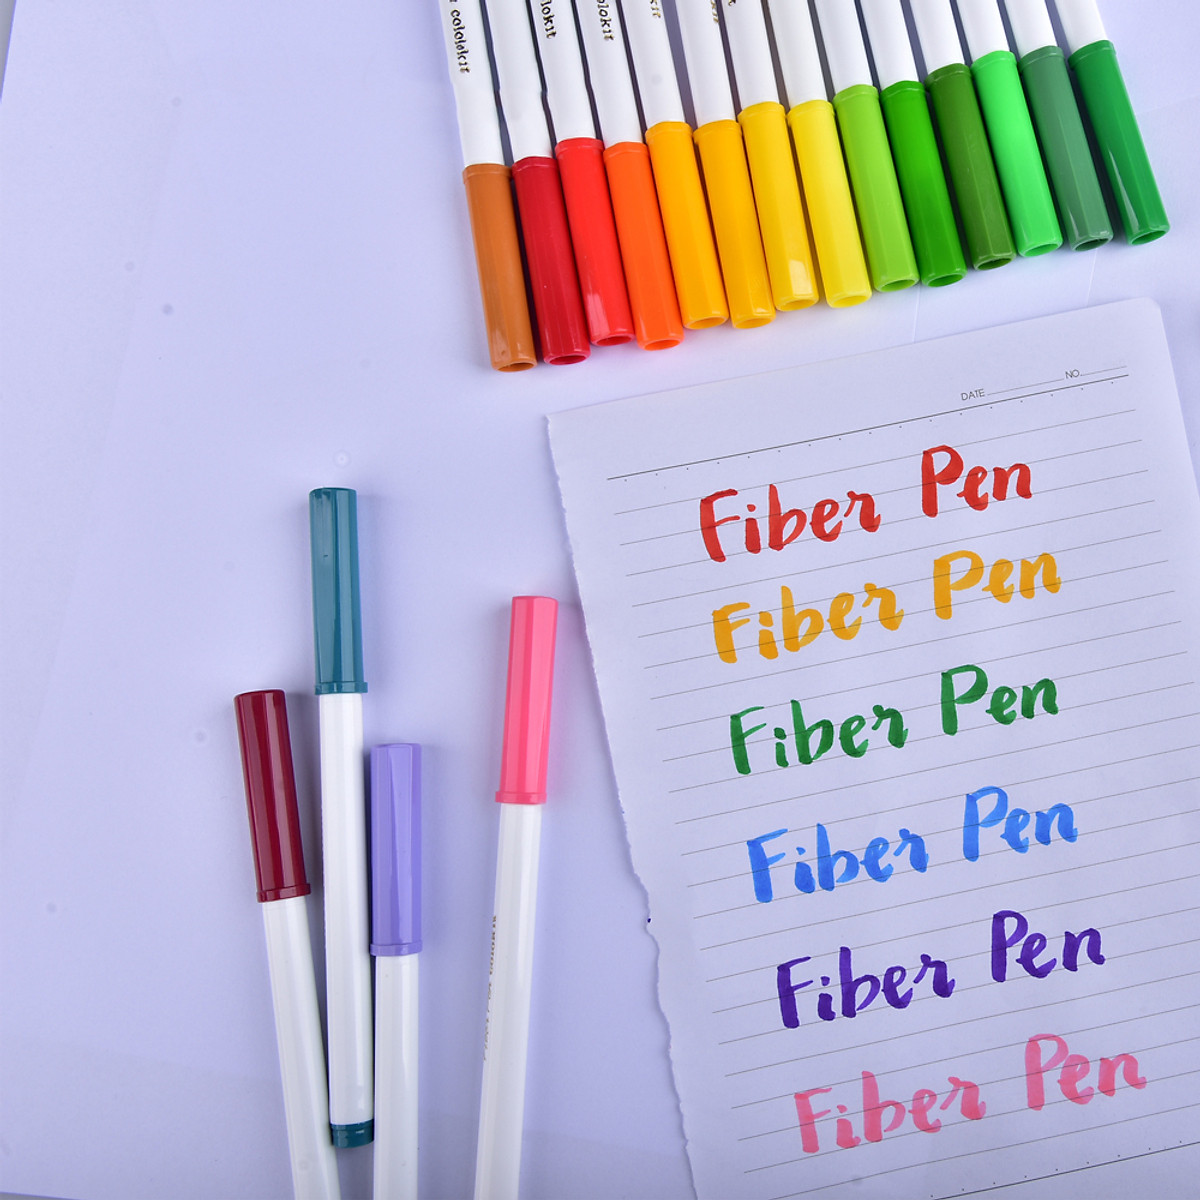 colokit
colokit
colokit
DATE NO.
Fiber Pen
Fiber Pen
Fiber Pen
Fiber Pen
Fiber Pen
Fiber Pen